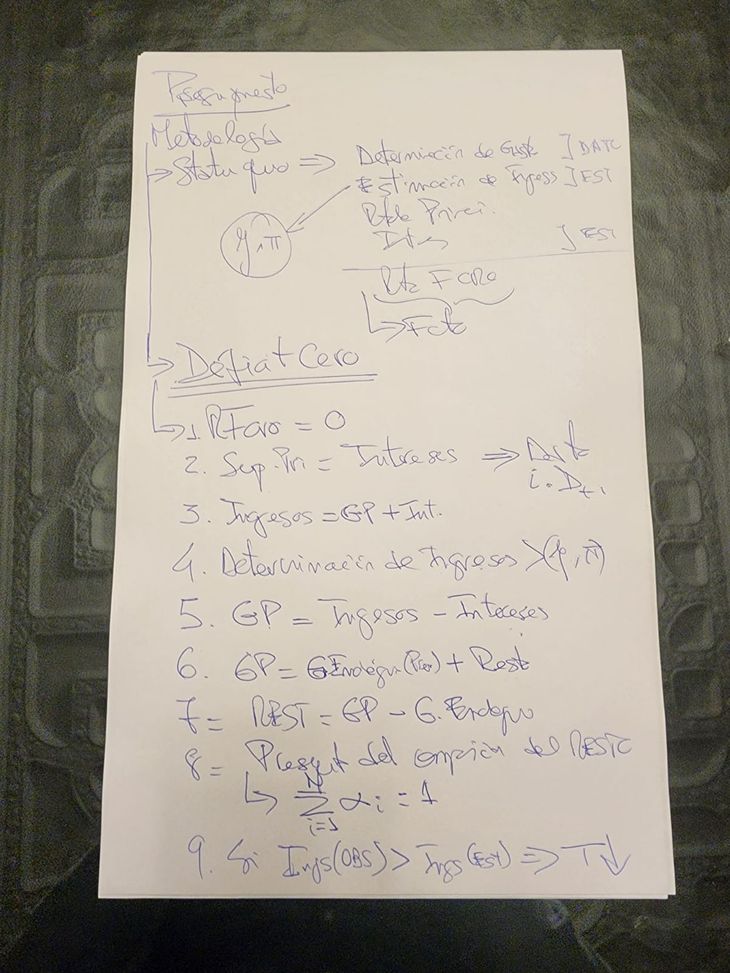 Presupuesto
Metodología
→ Statu quo ⇒ Determinación de Gasto ] DATO
Estimación de Ingresos ] EST
g, π
Rtdo Primei.
Int ] EST
Rtdo FCRO
↳ Fcto
→ Déficit Cero
↳ 1. RFcro = 0
2. Sup. Pri = Intereses ⇒ Dato
i. Dt-1
3. Ingresos = GP + Int.
4. Determinación de Ingresos (g, π)
5. GP = Ingresos - Intereses
6. GP = G Endógen (Prior) + Resto
7 = REST = GP - G. Endógeno
8 = del del RESTO
↳ N Σ i=1 αi = 1
9. Si Ings (OBS) > Ings (Est) ⇒ T↓